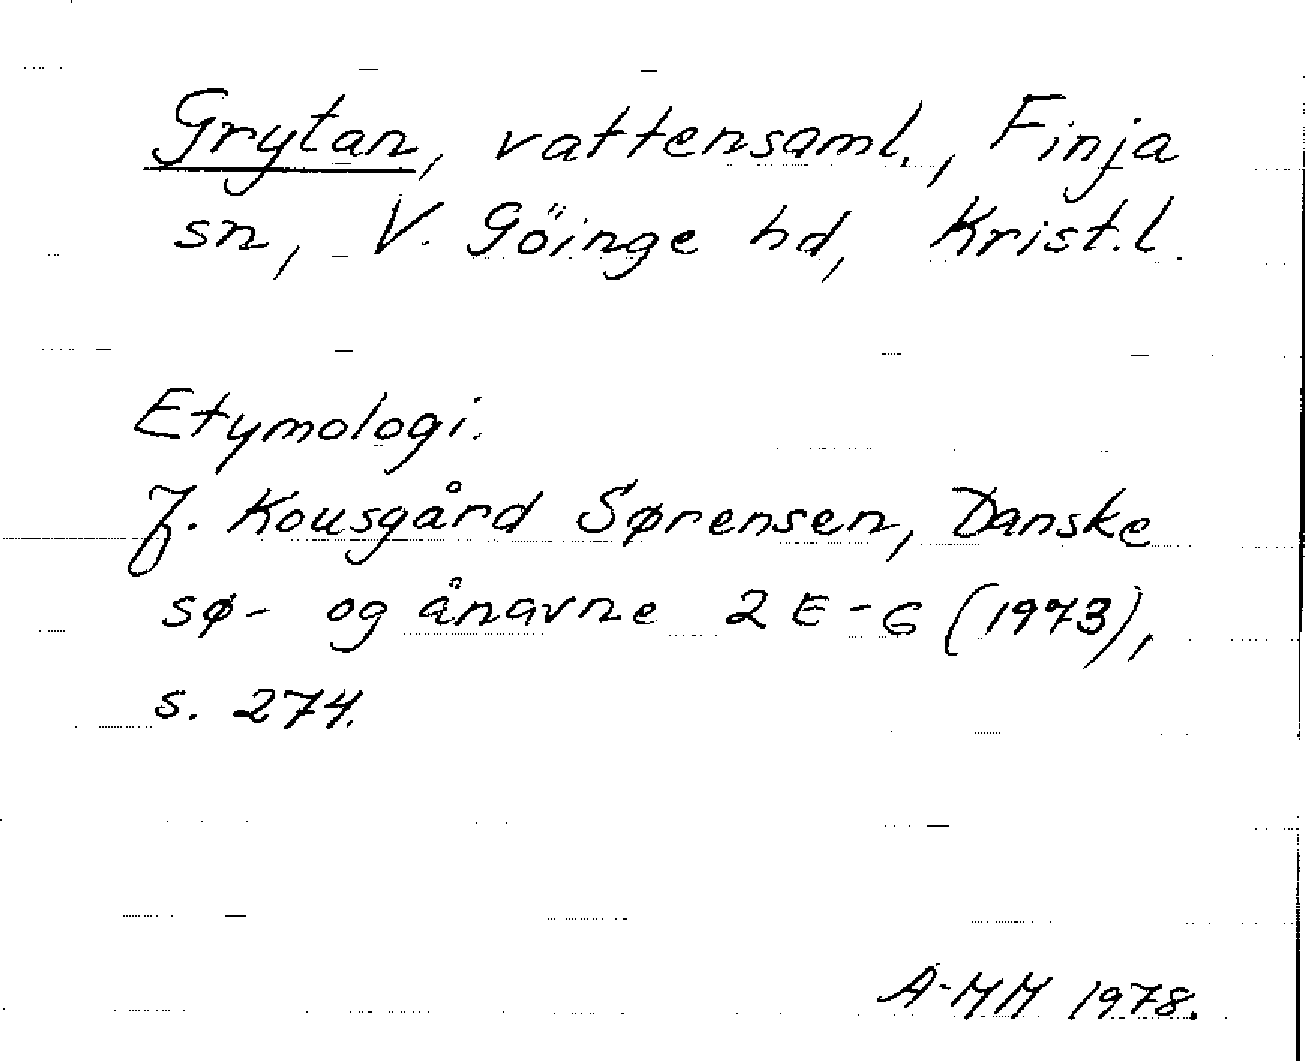 Grytan, vattensaml., Finja
sn, V. Göinge hd, Krist.l.
Etymologi.
J. Kousgård Sørensen, Danske
sø- og ånavne 2 E-G (1973),
s. 274.
A-MM 1978.